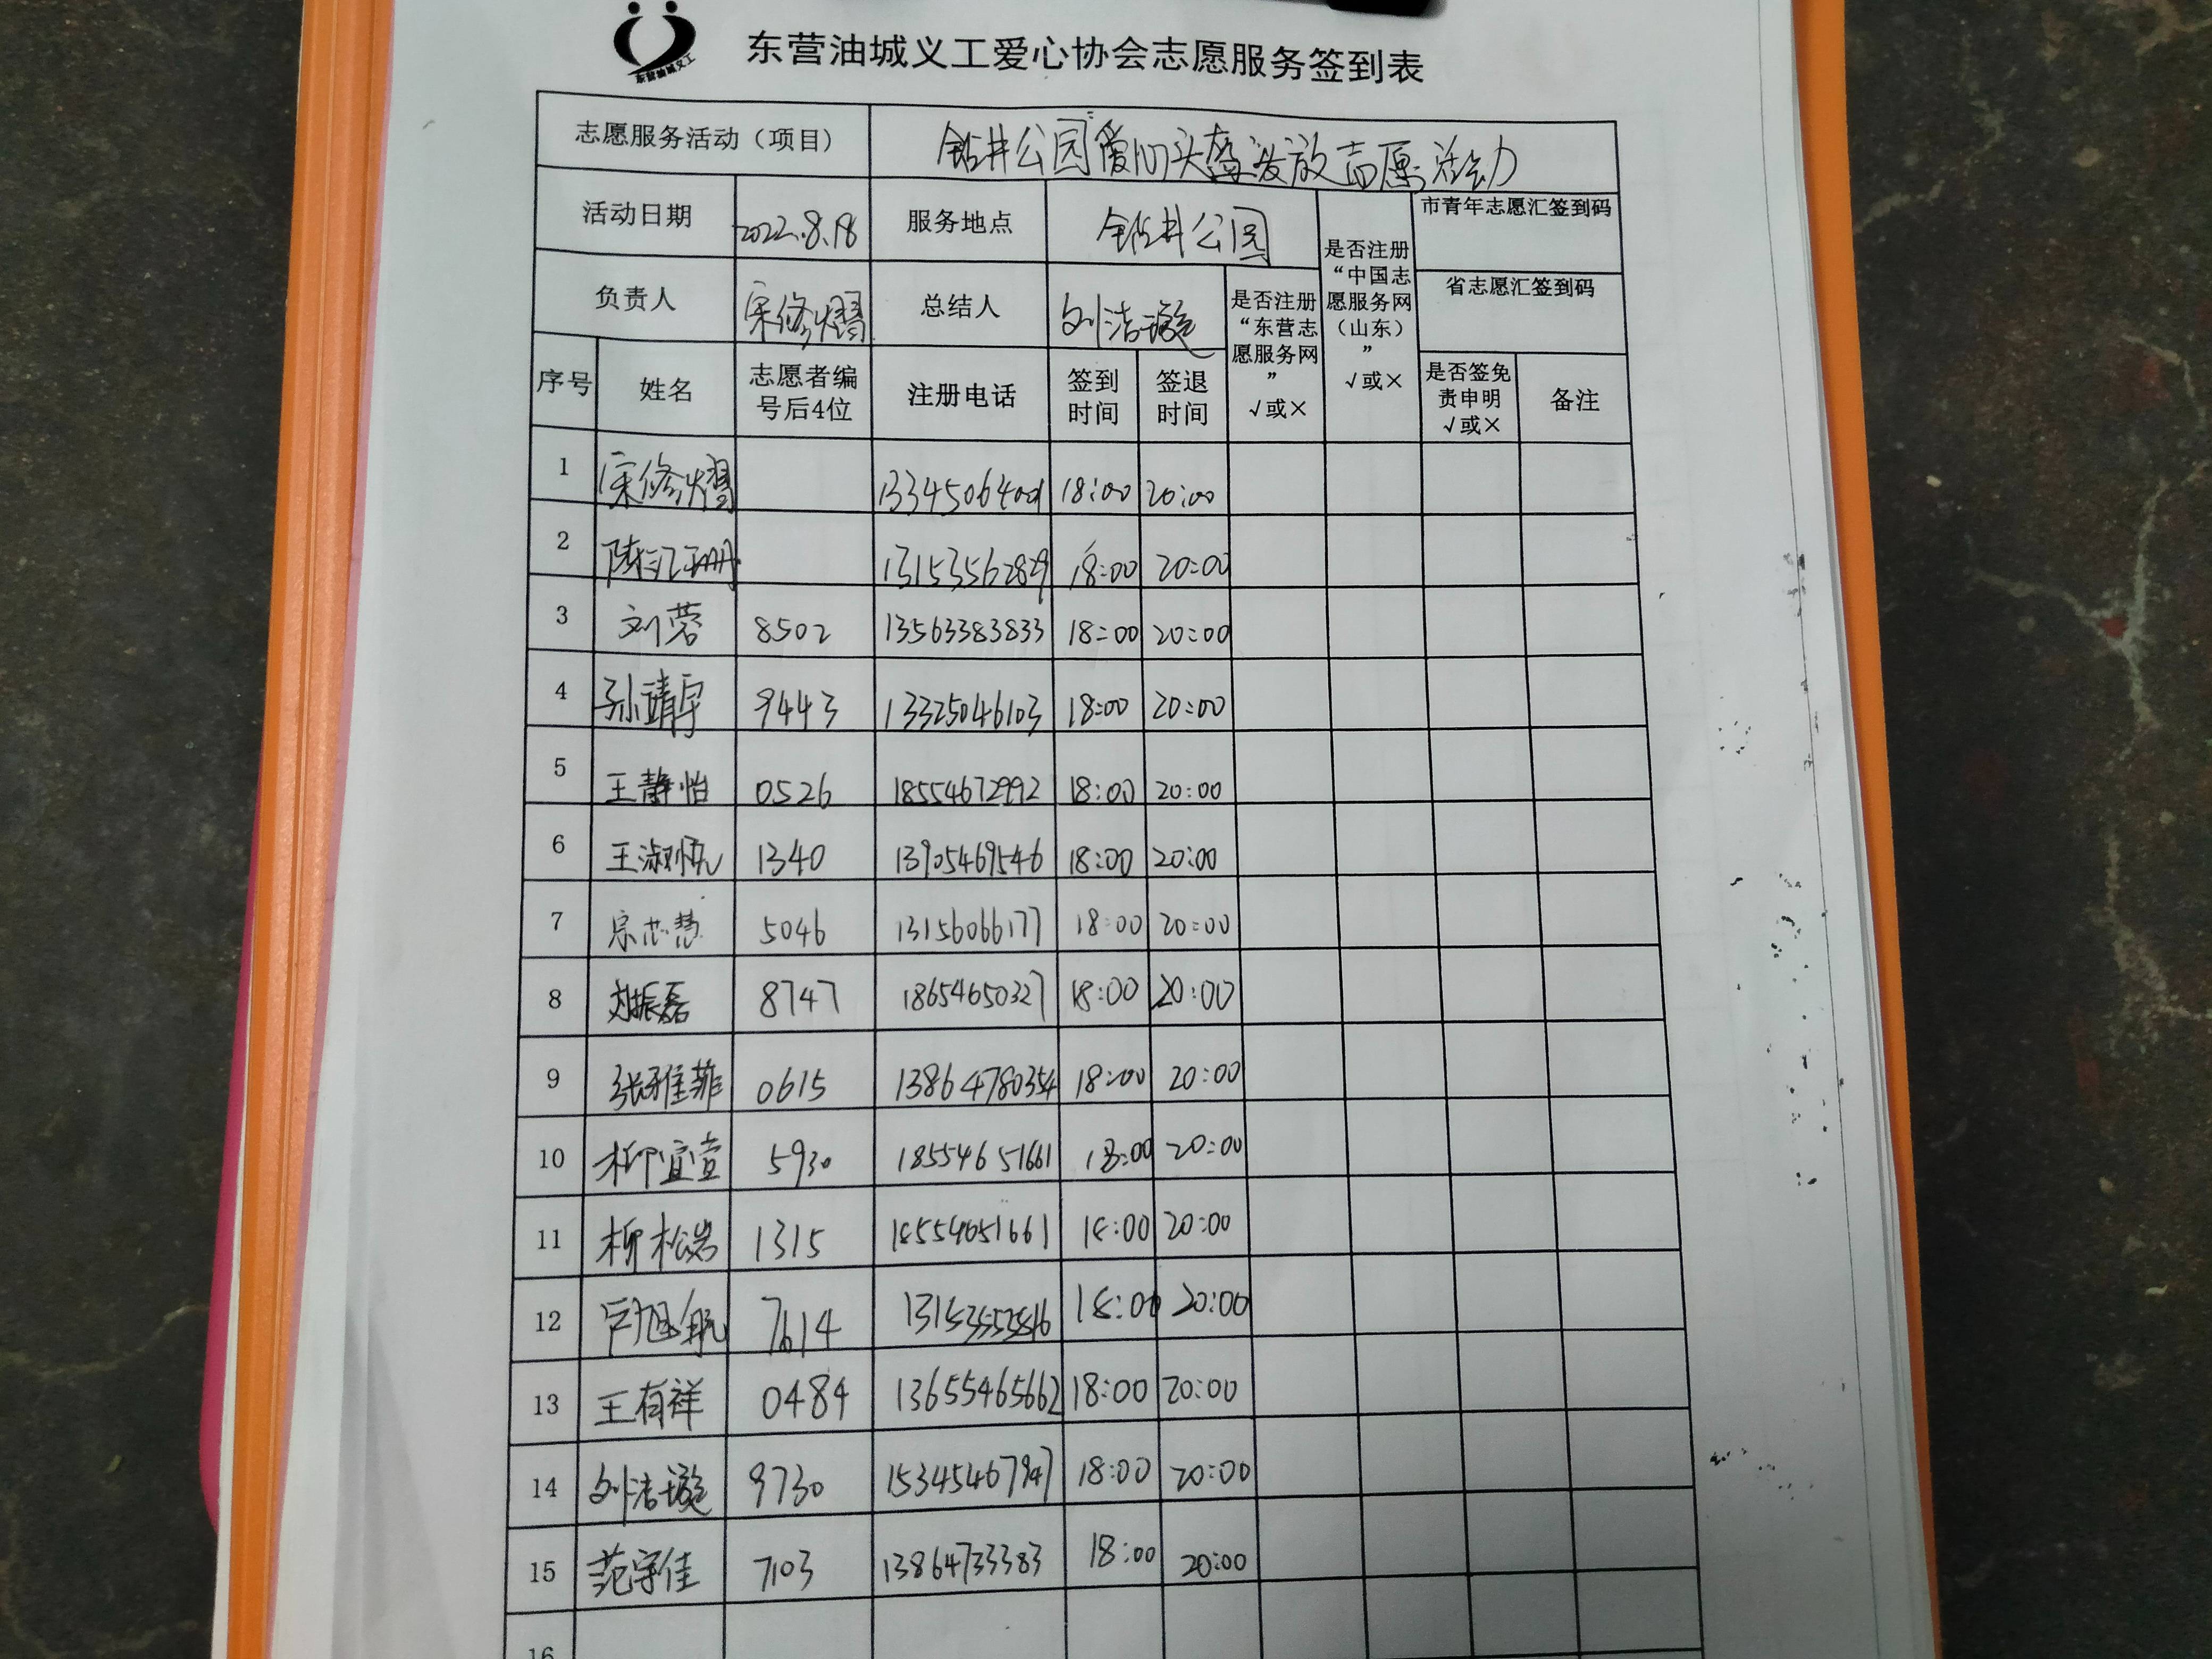 东营油城义工
东营油城义工爱心协会志愿服务签到表
志愿服务活动（项目） 钻井公园爱心头盔发放志愿活动
活动日期 2022.8.18 服务地点 钻井公园 是否注册“中国志愿服务网（山东）” √或× 市青年志愿汇签到码
负责人 宋修熠 总结人 刘洁璇 是否注册“东营志愿服务网” √或× 省志愿汇签到码
序号 姓名 志愿者编号后4位 注册电话 签到时间 签退时间 是否签免责申明 √或× 备注
1 宋修熠 13345064001 18:00 20:00
2 陈江珊 13153562829 18:00 20:00
3 刘蓉 8502 13563383833 18:00 20:00
4 孙靖宇 9443 13325046103 18:00 20:00
5 王静怡 0526 18554672992 18:00 20:00
6 王淑帆 1340 13905469546 18:00 20:00
7 宗芯慧 5046 13156066177 18:00 20:00
8 刘振磊 8747 18654650327 18:00 20:00
9 张雅菲 0615 13864780354 18:00 20:00
10 柳宜萱 5930 18554651661 18:00 20:00
11 柳松岩 1315 18554651661 18:00 20:00
12 卢旭航 7614 18:00 20:00
13 王有祥 0484 13655465662 18:00 20:00
14 刘洁璇 9730 15345467947 18:00 20:00
15 范宇佳 7103 13864733383 18:00 20:00
16